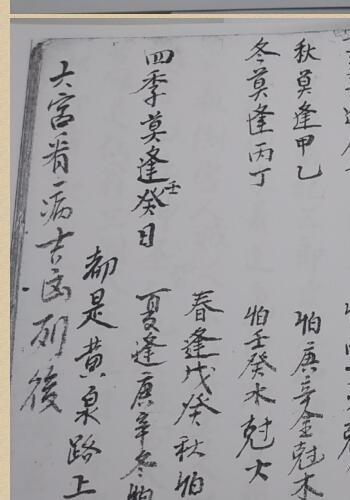 秋莫逢甲乙 怕庚辛金尅木
冬莫逢丙丁 怕壬癸水尅火
春逢戊癸秋怕
四季莫逢壬癸日 夏逢庚辛冬怕
都是黄泉路上
六宮看病吉凶列後